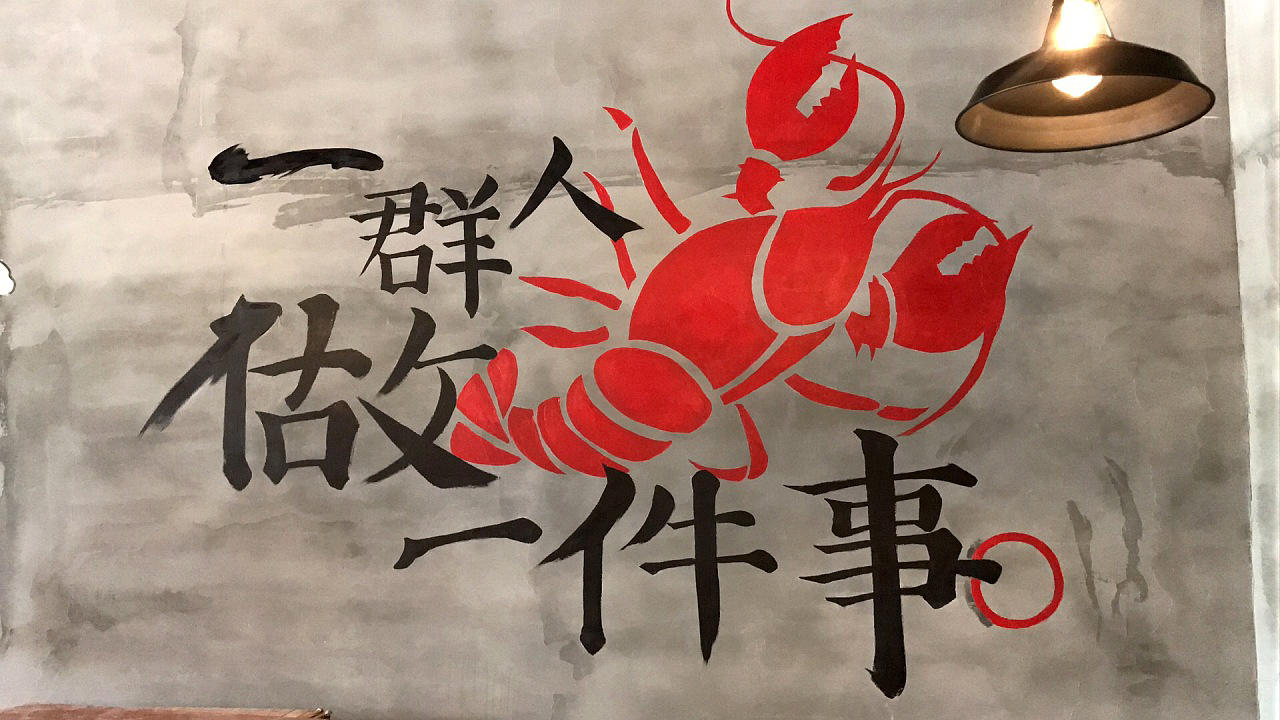 一群人
做
一件事。